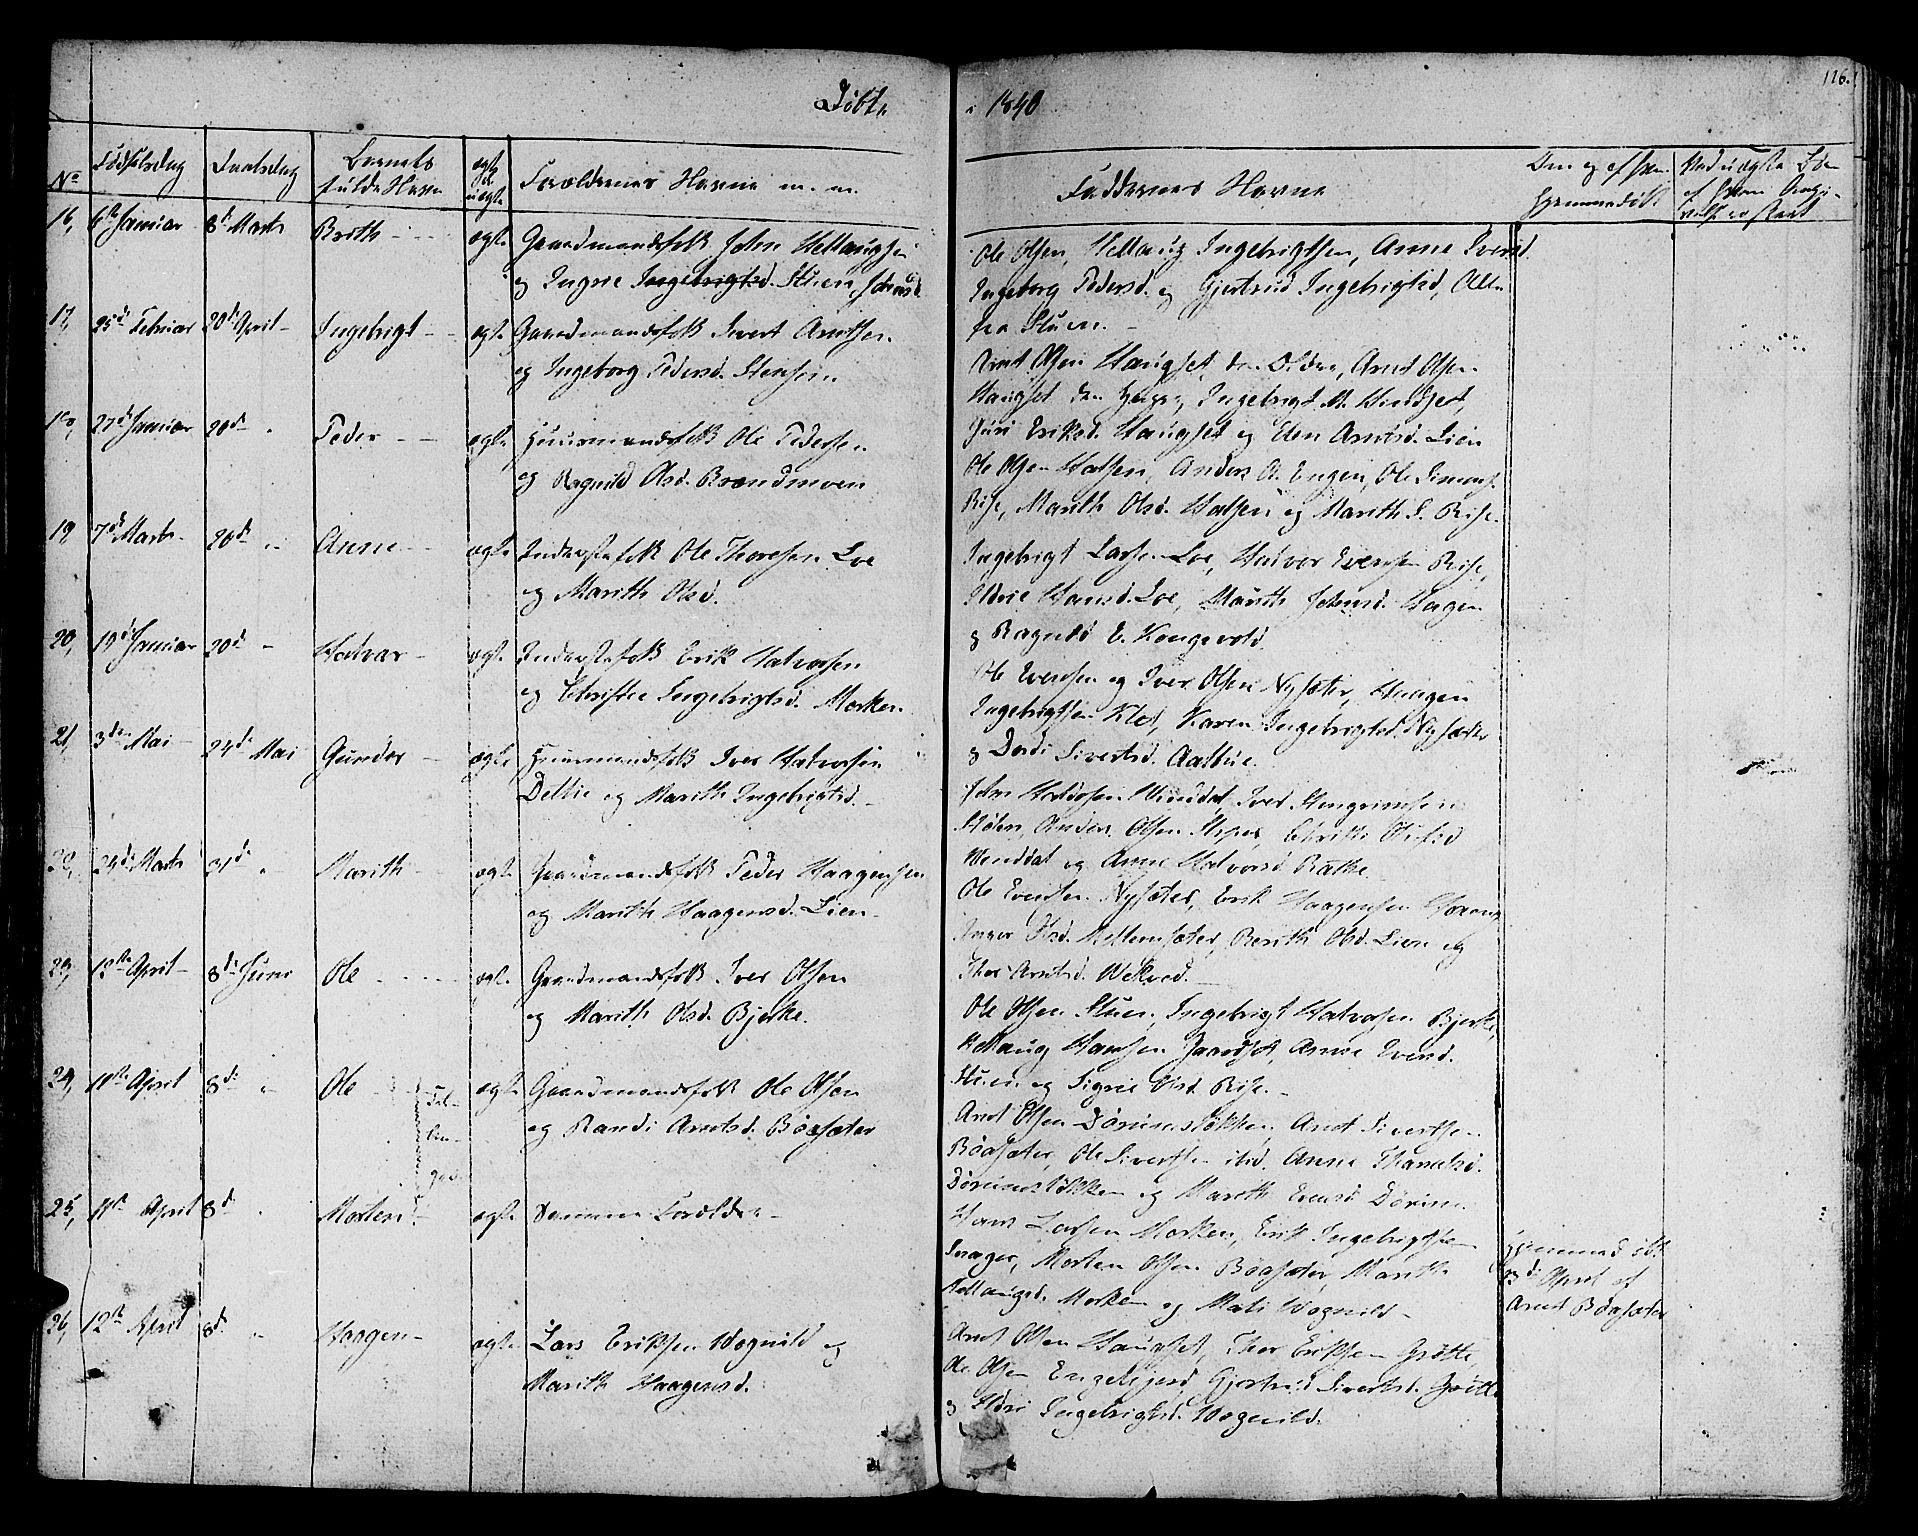 Døbte
i 1840
126.
No
Fødselsdag
Daabsdag
Barnets
fulde Navn
ægte
el.
uægte
Forældrenes Navne m. m.
Faddernes Navne
Naar og af hvem
hjemmedøbt
16, 6te Januar 8de Marts Berith ægte Gaardmandsfolk John Kellaugsen
og Ingrie Ingebrigtsd. Stuen, Johnsd.
Ole Olsen, Kellaug Ingebrigtsen, Anne Iversd.
Ingeborg Pedersd. og Gjertrud Ingebrigtsd, Alle
fra Stuen.
17, 25de Februar 20de April Ingebrigt ægte Gaardmandsfolk Sivert Arntsen
og Ingeborg Pedersd. Stensein
Arnt Olsen Haugset den Ældre, Arnt Olsen
Haugset den yngre, Ingebrigt M. Hindset,
Guri Eriksd. Haugset og Elen Arntsd. Lien
18, 27de Januar 20de " Peder ægte Huusmandsfolk Ole Pedersen
og Ragnild Olsd. Brændmoen
Ole Olsen Halsen, Anders A. Engen, Ole Simons.
Rise, Marith Olsd. Halsen og Marith S. Rise.
19 7de Marts 20de " Anne ægte Inderstefolk Ole Thoresen Loe
og Marith Olsd.
Ingebrigt Larsen Loe, Halvor Evensen Rise,
Sidrie Hansd. Loe, Marith Johnsd. Hagen
og Ragnild E. Kongsvold.
20, 19de Januar 20de " Halvor ægte Inderstefolk Erik Halvorsen
og Christie Ingebrigtsd. Morken.
Ole Evensen og Iver Olsen Nysæter, Haagen
Ingebrigtsen Klet, Karen Ingebrigtsd. Nysæter
og Dordi Sivertsd. Aalbue.
21, 3die Mai 24de Mai Gunder ægte Huusmandsfolk Iver Halvorsen
Delbie og Marith Ingebrigtsd.
John Halvorsen Vinddal, Iver Stengrimsen
Stølen, Anders Olsen
Vinddal og Anne Halvorsd. Bakke
22, 24de Marts 31de " Marith ægte Gaardmandsfolk Peder Haagensen
og Marith Haagensd. Lien
Ole Evensen Nysæter, Erik Haagensen
Inger Olsd. Mellemsæter, Berith Olsd. Lien og
Thor Arntsd. Vekved.
23, 12te April 8de Juni Ole ægte Gaardmandsfolk Iver Olsen
og Marith Olsd. Bjerke.
Ole Olsen Stuen, Ingebrigt Halvorsen Bjerke,
Kellaug Hansen Gaardset, Anne Iversd.
Stuen og Sigrie Olsd. Rise.
24, 11te April 8de " Ole ægte Gaardmandsfolk Ole Olsen
og Randi Arntsd. Böasæter
Arnt Olsen Dörumslökken, Arnt Sivertsen
Böasæter, Ole Sivertsen ibid. Anne Tharaldsd.
Dörumslökken og Marith Evensd Dörum.
25, 11te April 8de " Morten ægte Samme Forældre
Hans Larsen Morken, Erik Ingebrigtsen
Snøger, Morten Olsen Böasæter, Marith
Kellaugsd. Morken og Mali Vognild
Hjemmedøbt
13de April af
Arnt Böasæter
26, 12te April 8de " Haagen ægte Lars Eriksen Vognild og
Marith Haagensd.
Arnt Olsen Haugset, Thor Eriksen Grötte,
Ole Olsen Engelsjord, Gjertrud Sivertsd. Grötte
og Sidri Ingebrigtsd. Vognild.